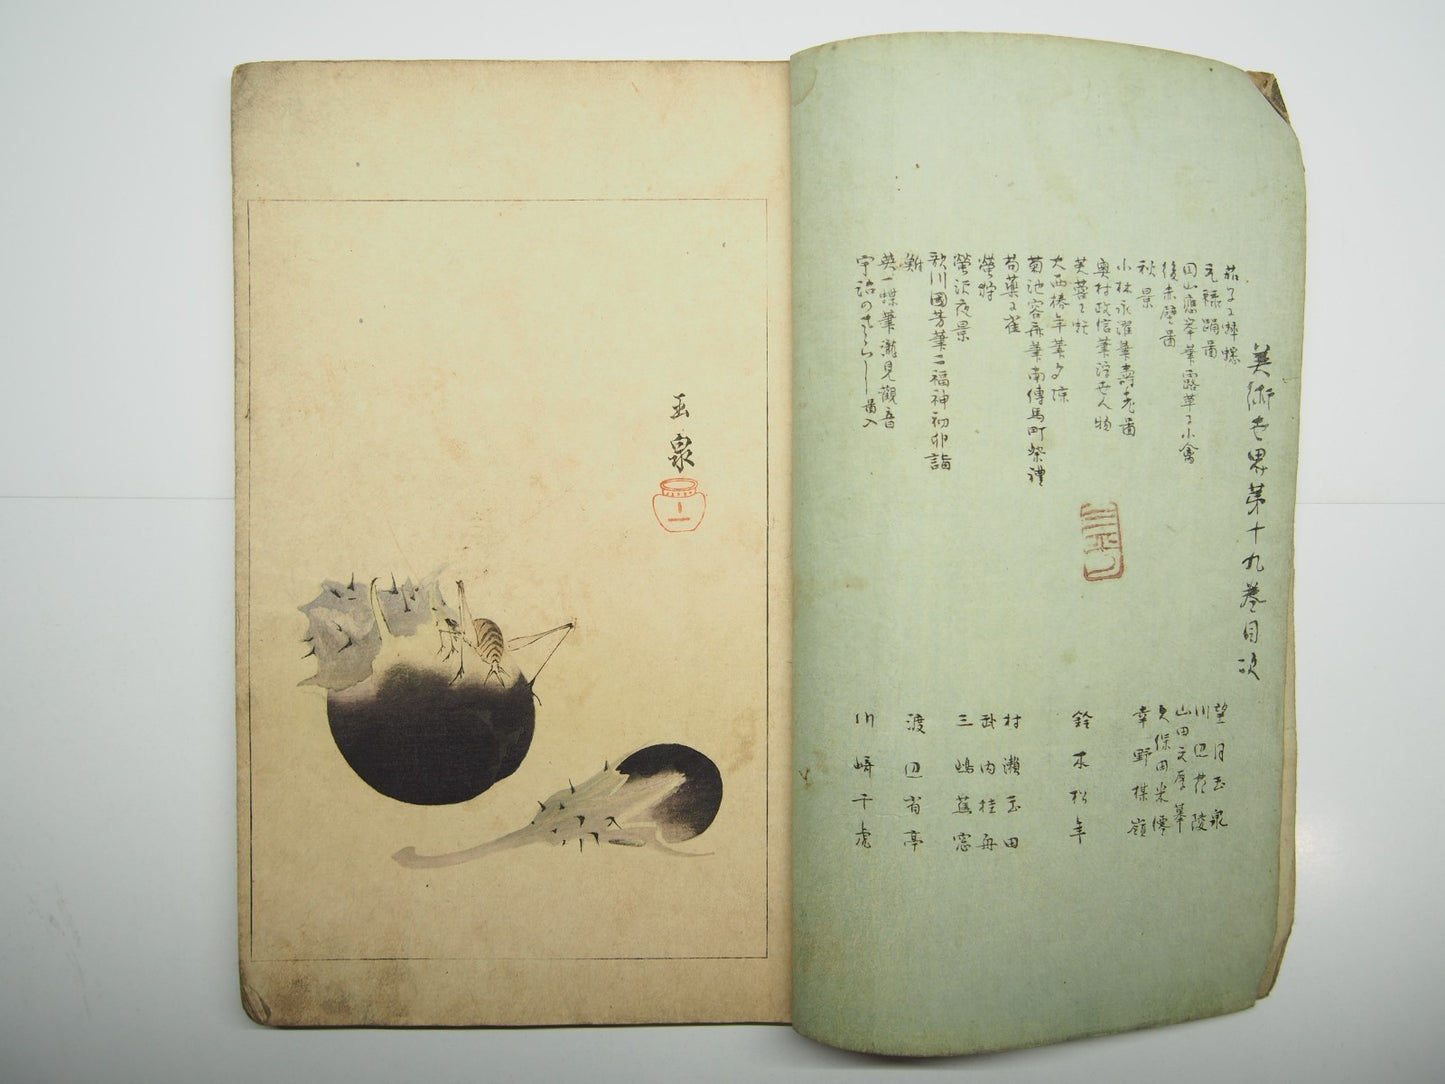 美術世界第十九巻目次
茄子ニ蟀蟋
元禄踊圖
円山應挙筆露草ニ小禽
後赤壁圖
秋景
小林永濯筆壽老圖
奥村政信筆浮世人物
芙蓉ニ蛇
大西椿年筆夕涼
菊池容斎筆南傳馬町祭禮
芍藥ニ雀
螢狩
螢沢夜景
歌川國芳筆二福神初卯詣
雞
英一蝶筆瀧見觀音
宇治のさらし圖
望月玉泉
川辺花陵
山田文厚摹
久保田米僊
幸野楳嶺
鈴木松年
村瀬玉田
武内桂舟
三嶋蕉窓
渡辺省亭
川崎千虎
玉泉